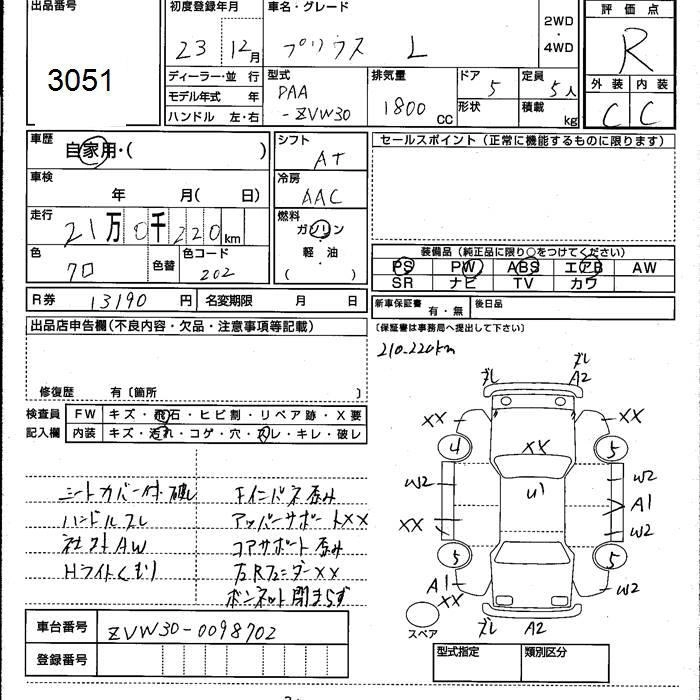 出品番号 初度登録年月 車名・グレード 2WD・4WD 評価点
3051 23 12月 プリウス L R
ディーラー・並行 型式 排気量 ドア 定員 外装 内装
モデル年式 年 PAA 5 5人
ハンドル 左・右 -ZVW30 1800CC 形状 積載 kg C C
車歴 自家用・( ) シフト AT セールスポイント(正常に機能するものに限ります)
車検 年 月( 日) 冷房 AAC
走行 21万0千220km 燃料 ガソリン・軽油( )
色 70 色替 色コード 202 装備品(純正品に限り○をつけてください)
PS PW ABS エアB AW
SR ナビ TV カワ
R券 13190円 名変期限 月 日 新車保証書 有・無 後日品
(保証書は事務局へ提出して下さい)
出品店申告欄(不良内容・欠品・注意事項等記載)
210-220km
修復歴 有〔箇所 〕
検査員 FW キズ・飛石・ヒビ割・リペア跡・X要
記入欄 内装 キズ・汚れ・コゲ・穴・スレ・キレ・破レ
シートカバー付・破レ F インパネ歪み
ハンドルスレ アッパーサポートXX
社外AW コアサポート歪み
Hライトくもり 左RフェンダーXX
ボンネット閉まらず
ズレ ズレ A2
XX XX
4 XX 5
W2 U1 W2
A1
XX W2
5 5
A1 W2
XX
スペア ズレ A2
車台番号 ZVW30-0098702
登録番号
型式指定 類別区分